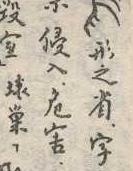 形之省.字
侵入.危害.
毁室
球巢